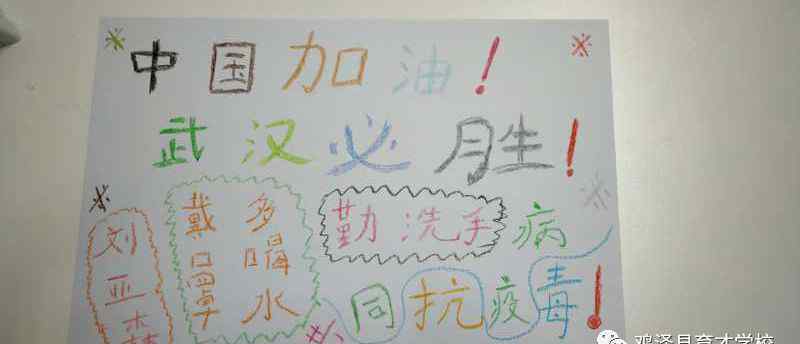 中国加油!
武汉必胜!
勤洗手
病
多喝水
戴口罩
刘亚
同抗疫毒!
鸡泽县育才学校